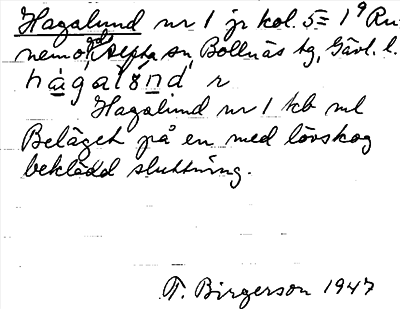 Hagalund nr 1 jr kol. 5 = 1⁹ Ru
nemo, Alfta sn, Bollnäs tg, Gävl. l.
hàgalənd r
Hagalund nr 1 kb ml
Beläget på en med lövskog
beklädd sluttning.
T. Birgerson 1947